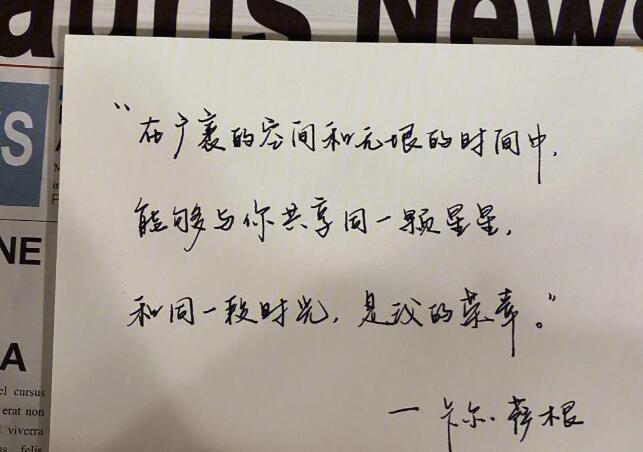 auris News
S
NE
A
el cursus
erat non
viverra
felis
“在广袤的空间和无垠的时间中，
能够与你共享同一颗星星，
和同一段时光，是我的荣幸。”
—卡尔·萨根